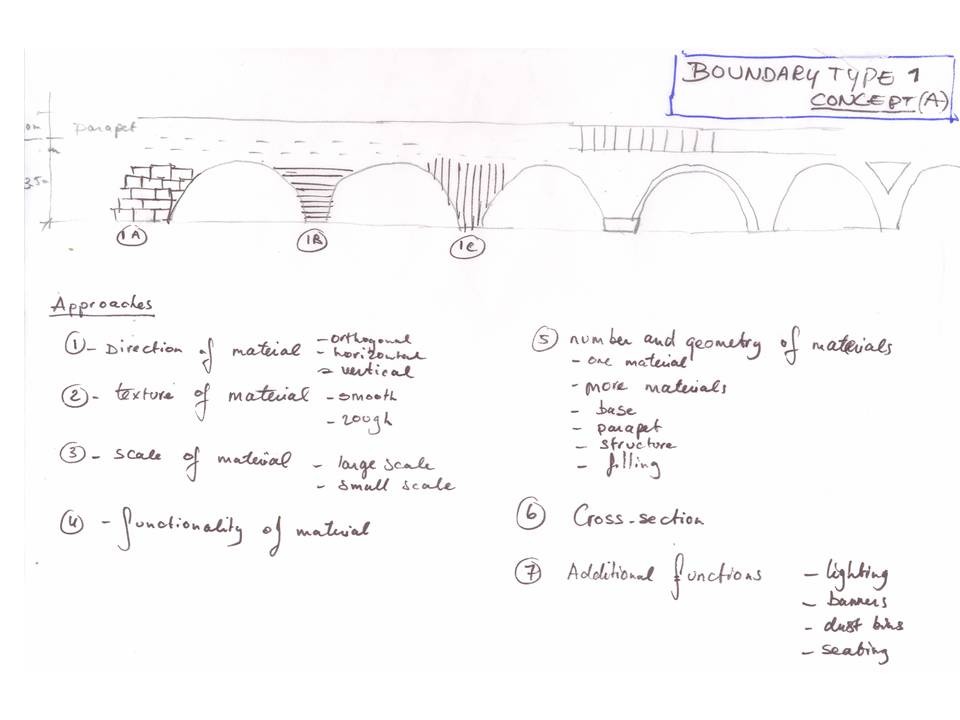 BOUNDARY TYPE 1
CONCEPT (A)
parapet
1A
1B
1C
Approaches
1 - Direction of material - orthogonal
- horizontal
- vertical
2 - texture of material - smooth
- rough
3 - scale of material - large scale
- small scale
4 - functionality of material
5 number and geometry of materials
- one material
- more materials
- base
- parapet
- structure
- filling
6 Cross-section
7 Additional functions - lighting
- banners
- dust bins
- seating